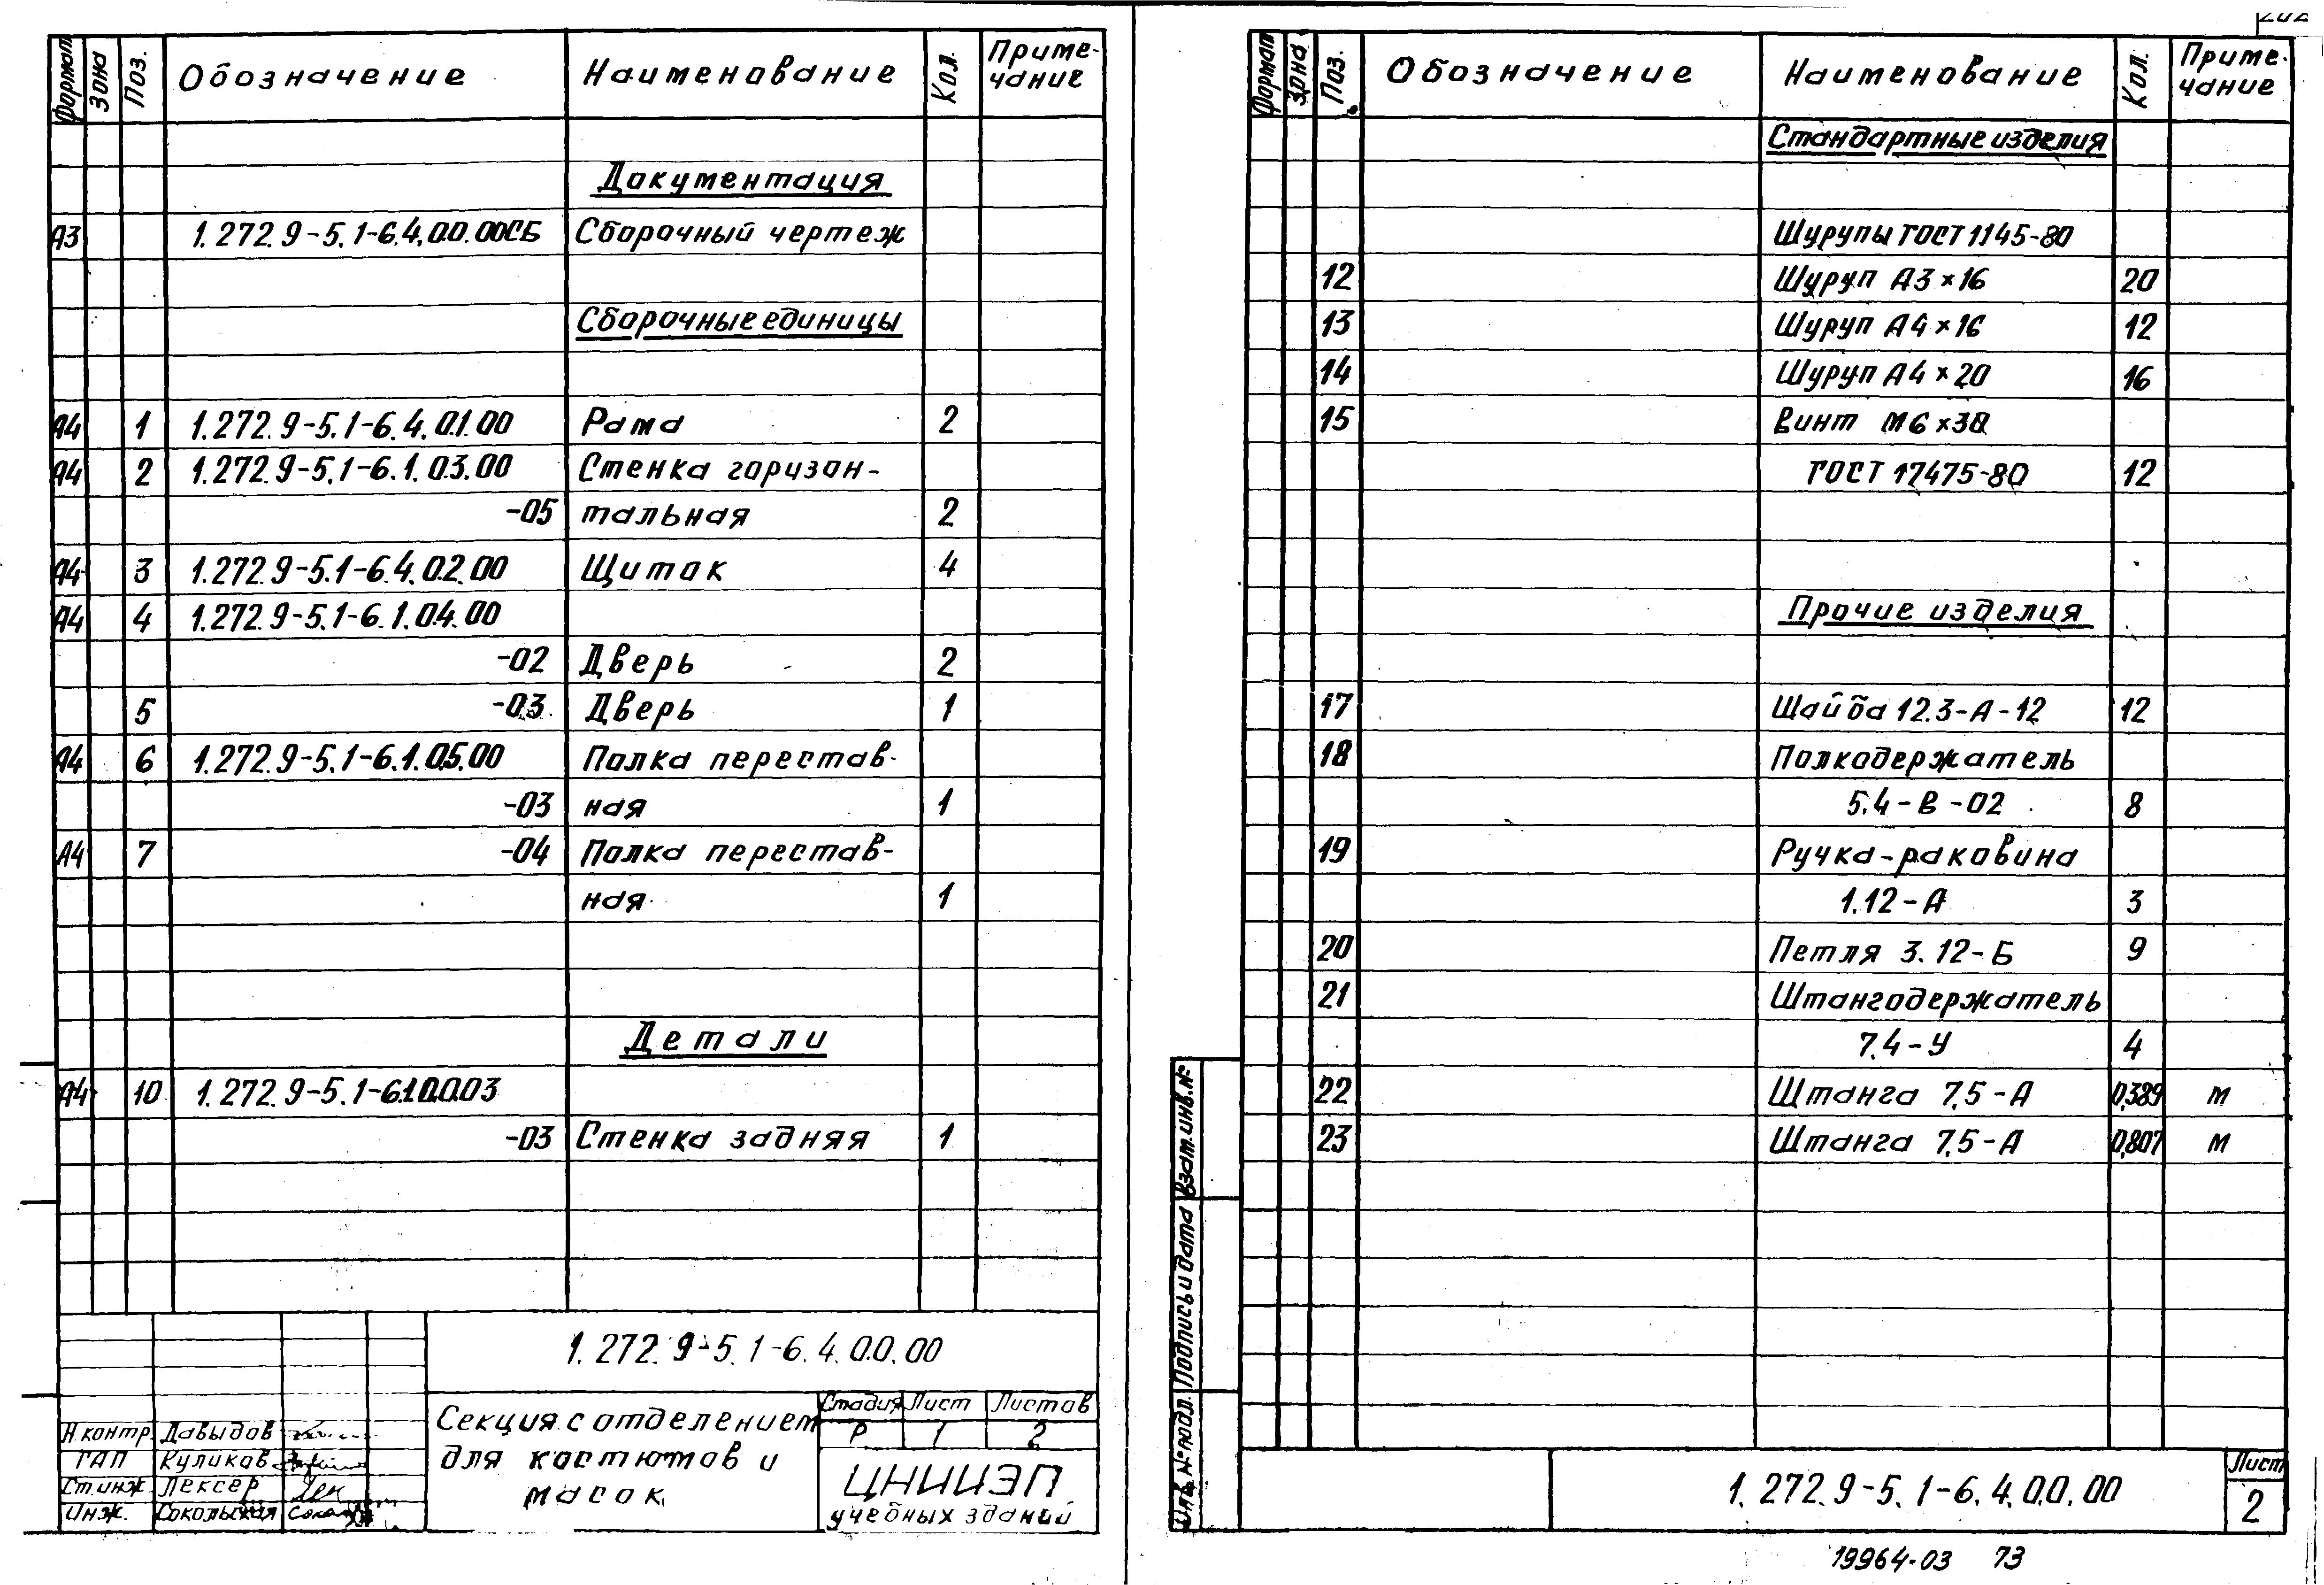 Формат Зона Поз. Обозначение Наименование Кол. Приме-
чание
Документация
А3 1.272.9-5.1-6.4.00.00СБ Сборочный чертеж
Сборочные единицы
А4 1 1.272.9-5.1-6.4.01.00 Рама 2
А4 2 1.272.9-5.1-6.1.03.00 Стенка горизон-
-05 тальная 2
А4 3 1.272.9-5.1-6.4.02.00 Щиток 4
А4 4 1.272.9-5.1-6.1.04.00
-02 Дверь 2
5 -03 Дверь 1
А4 6 1.272.9-5.1-6.1.05.00 Полка перестав-
-03 ная 1
А4 7 -04 Полка перестав-
ная 1
Детали
А4 10 1.272.9-5.1-6.1.00.03
-03 Стенка задняя 1
1.272.9-5.1-6.4.00.00
Секция с отделением
для костюмов и
масок
Стадия Лист Листов
Р 1 2
ЦНИИЭП
учебных зданий
Н.контр. Давыдов
ГАП Куликов
Ст.инж. Лексер
Инж. Сокольская
Формат Зона Поз. Обозначение Наименование Кол. Приме-
чание
Стандартные изделия
Шурупы ГОСТ 1145-80
12 Шуруп А3×16 20
13 Шуруп А4×16 12
14 Шуруп А4×20 16
15 Винт М6×30
ГОСТ 17475-80 12
Прочие изделия
17 Шайба 12.3-А-12 12
18 Полкодержатель
5.4-В-02 8
19 Ручка-раковина
1.12-А 3
20 Петля 3.12-Б 9
21 Штангодержатель
7.4-У 4
22 Штанга 7.5-А 0,389 м
23 Штанга 7.5-А 0,807 м
Инв.№подл. Подпись и дата Взам.инв.№
1.272.9-5.1-6.4.00.00
Лист
2
19964-03 73